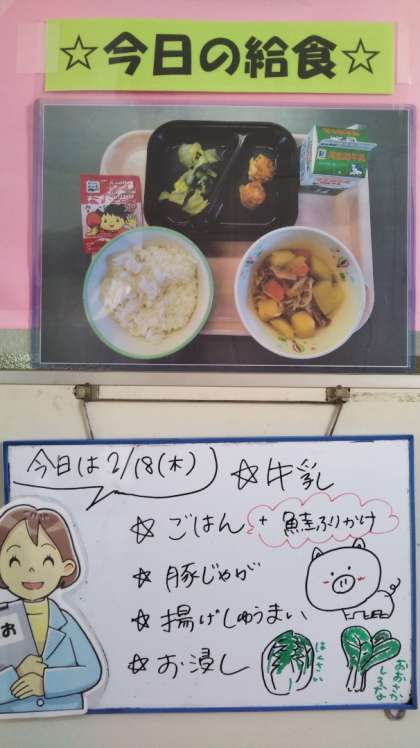 ☆今日の給食☆
今日は2/18(木)
☆牛乳
☆ごはん + 鮭ふりかけ
☆豚じゃが
☆揚げしゅうまい
☆お浸し
はくさい
おおさか
しろな
お